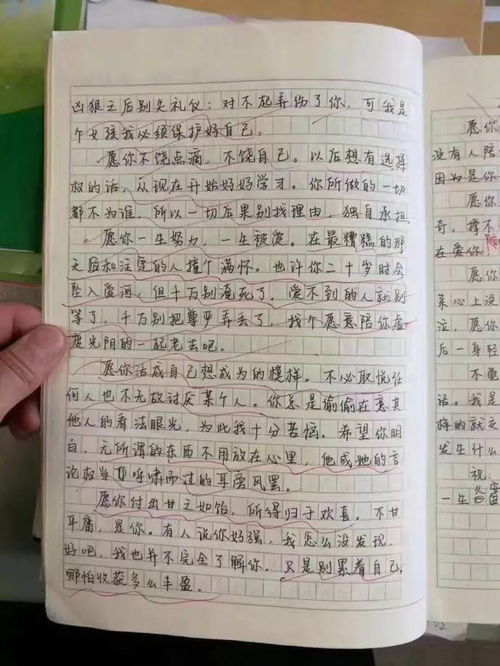 凶狠之后别失礼仪：对不起弄伤了你，可我是
个女孩我必须保护好自己。
愿你不饶点滴，不饶自己。以后想有选择
权的话，从现在开始好好学习。你所做的一切
都不为谁，所以一切后果别找理由，独自承担。
愿你一生努力，一生被爱。在最糟糕的那
天后和注定的人撞个满怀。也许你二十岁时会
坠入爱河，但千万别淹死了，爱不到的人就别
等了，千万别把尊严弄丢了，找个愿意陪你虚
度光阴的一起老去吧。
愿你活成自己想成为的模样。不必取悦任
何人也不无故讨厌某个人。你总是偷偷在意其
他人的看法眼光，为此我十分苦恼。希望你明
白，无所谓的东西不用放在心里，他或她的言
论权当耳呼啸而过的耳旁风罢。
愿你付出甘之如饴，所得归于欢喜。不甘
平庸，是你。有人说你好强，我怎么没发现，
好吧，我也并不完全了解你。只是别累着自己，
哪怕收获多么丰盈。
愿你
没有人陪
因为是你
愿你
奇，撑不
在爱你！
愿你
来心上没
注，愿你
后一身轻
不要
话。我是
样的就
发生什么
祝：
一生